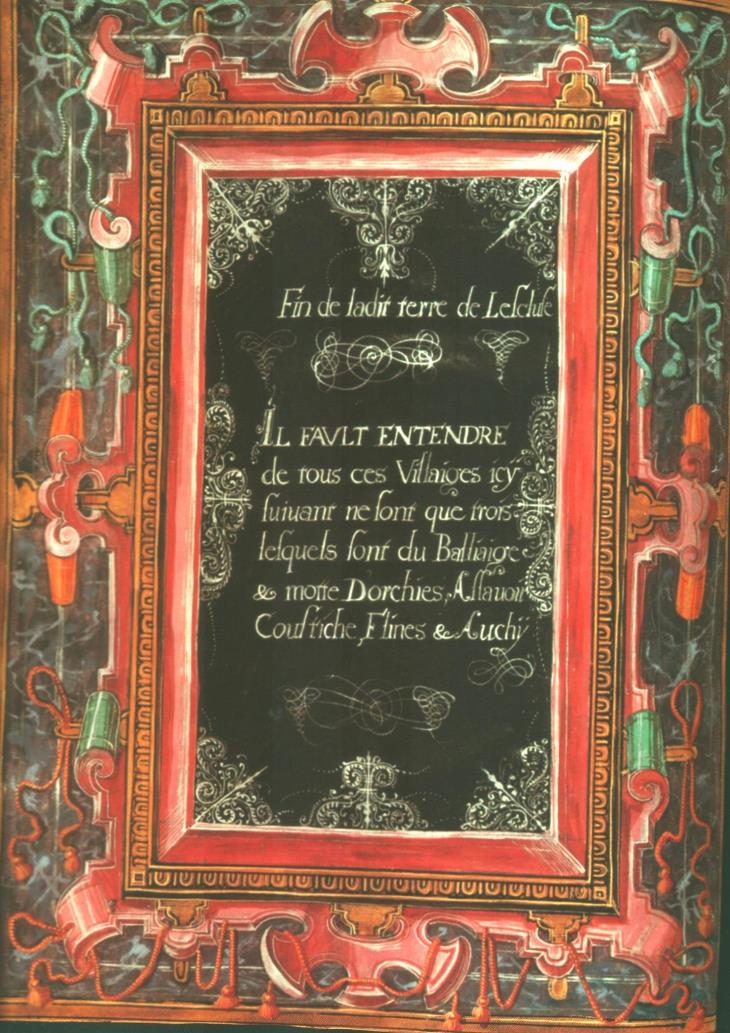 Fin de ladit terre de Leſcluſe
IL FAVLT ENTENDRE
de tous ces Villaiges icy
ſuiuant ne ſont que trois
leſquels ſont du Balliaige
& motte Dorchies, Aſſauoir
Couſtiche, Flines & Auchy